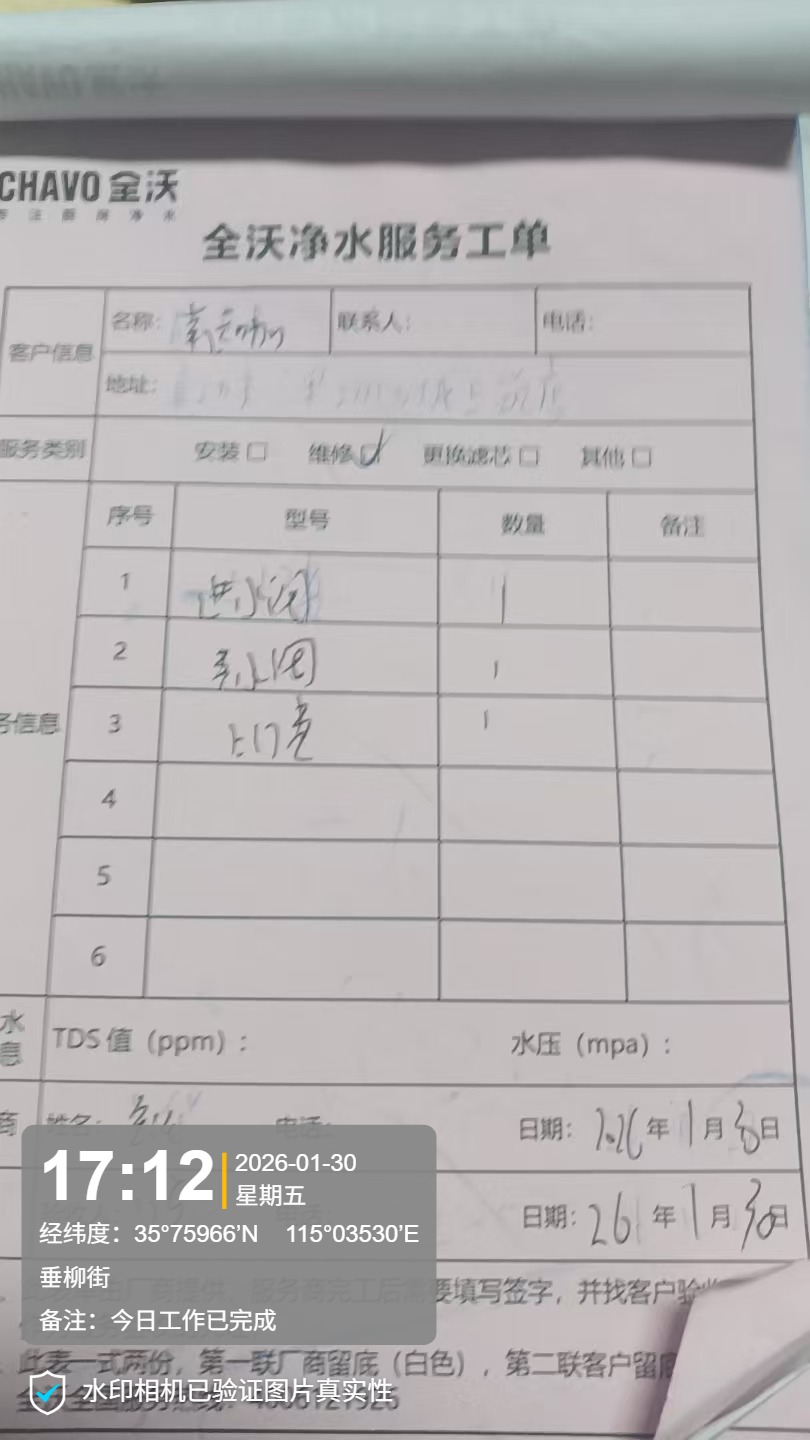 CHAVO 全沃
专注厨房净水
全沃净水服务工单
客户信息
名称：
联系人：
电话：
地址：
服务类别
安装☐ 维修☑ 更换滤芯☐ 其他☐
序号 型号 数量 备注
务信息
1 进水阀 1
2 1
3 上门费 1
4
5
6
水
息
TDS 值（ppm）：
水压（mpa）：
商 姓名：
电话：
日期：2026年1月30日
日期：26年1月30日
17:12
2026-01-30
星期五
经纬度：35°75966'N 115°03530'E
垂柳街
备注：今日工作已完成
要填写签字，并找客户验收
此表一式两份，第一联厂商留底（白色），第二联客户留底
水印相机已验证图片真实性